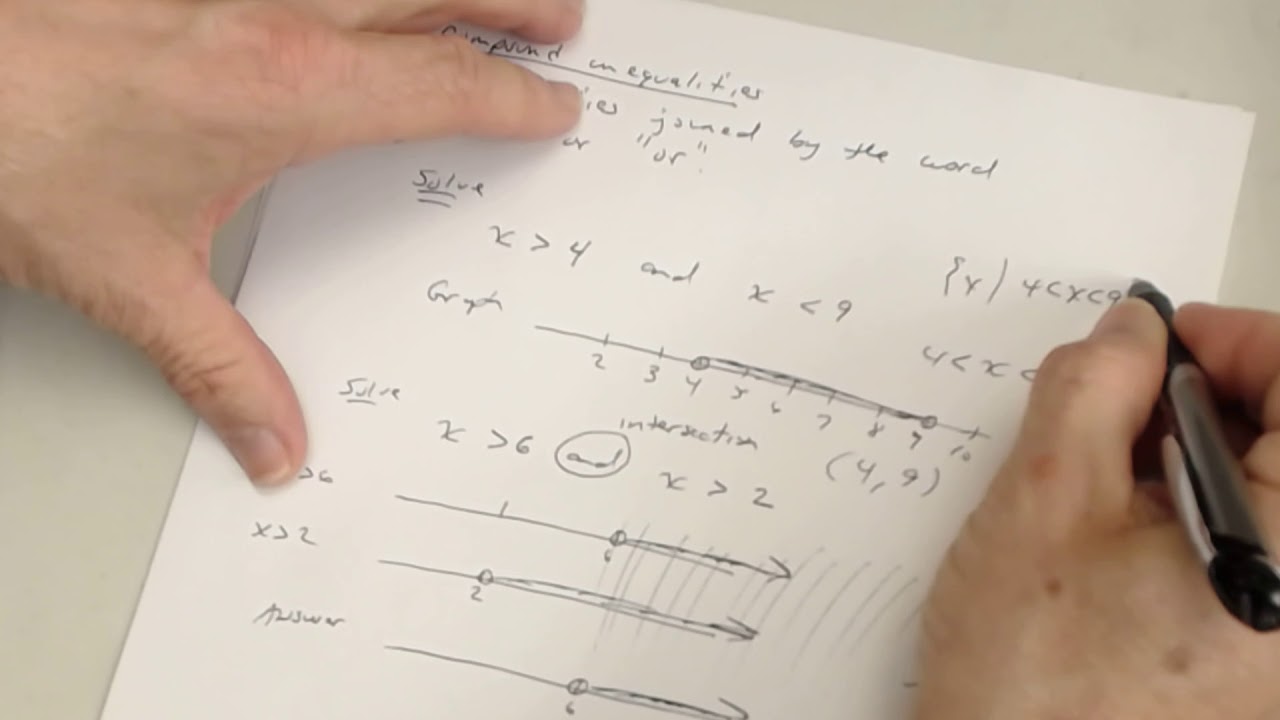 Compound inequalities
joined by the word
or "or"
Solve
x > 4 and x < 9 {x | 4<x<9
4 < x <
Graph
2 3 4 5 6 7 8 9 10
Solve
intersection
x > 6 and x > 2 (4, 9)
>6
6
x>2
2
Answer
6